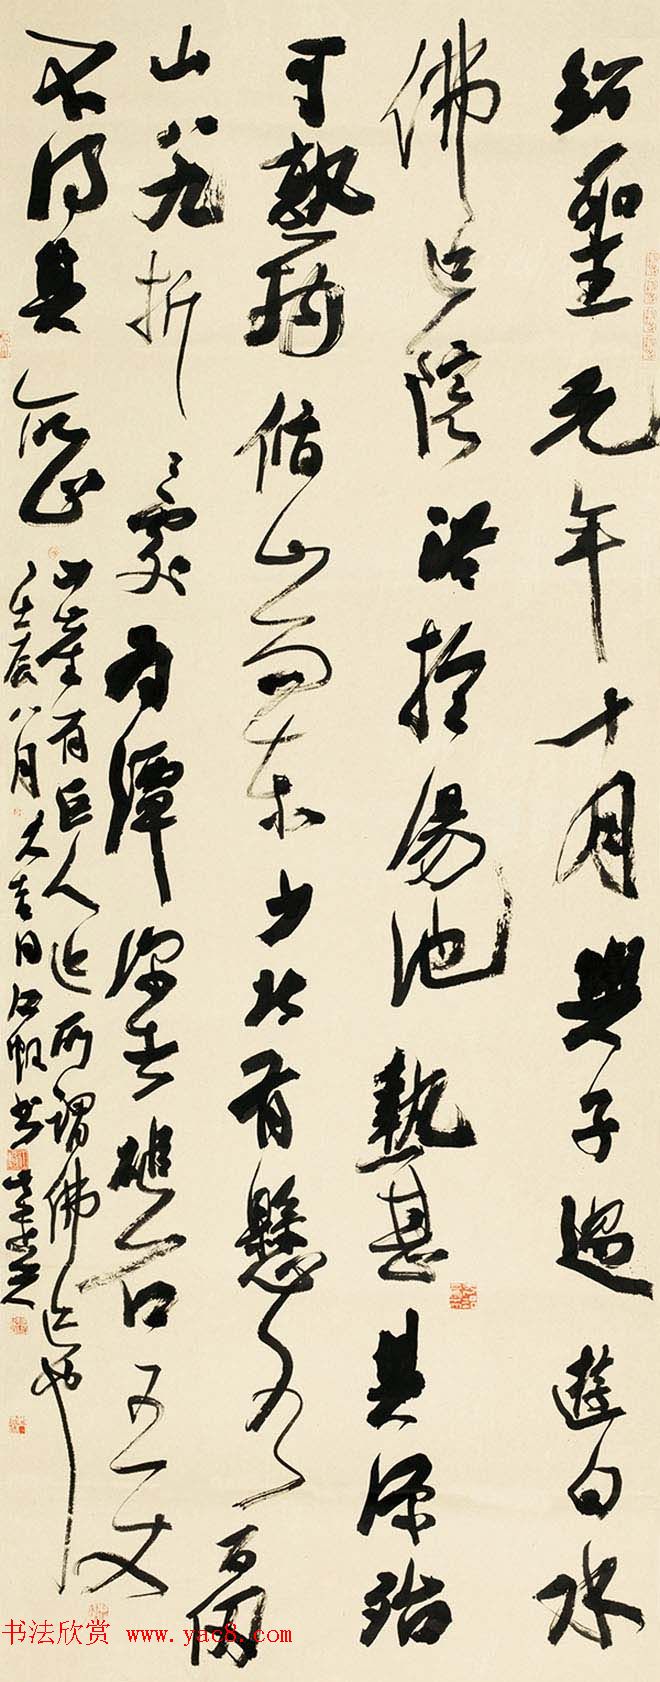 紹聖元年十月與子過遊白水
佛迹院浴於湯池熱甚其源殆
可熟物循山而東少北有懸水百仞
山八九折々處為潭深者磓石五丈
不得其所止
山崖有巨人迹所謂佛迹也
壬辰八月大吉日江帆書
书法欣赏 www.yac8.com